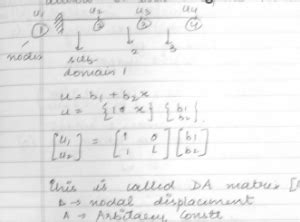 u₁ u₂ u₃ u₄
1 2 3 4
nodes sub- 2 3
domain 1
u = b₁ + b₂x
u = {1 x} {b₁ b₂}
[u₁ u₂] = [1 0 1 L] [b₁ b₂]
This is called DA matrix
D → nodal displacement
A → Arbitrary constt